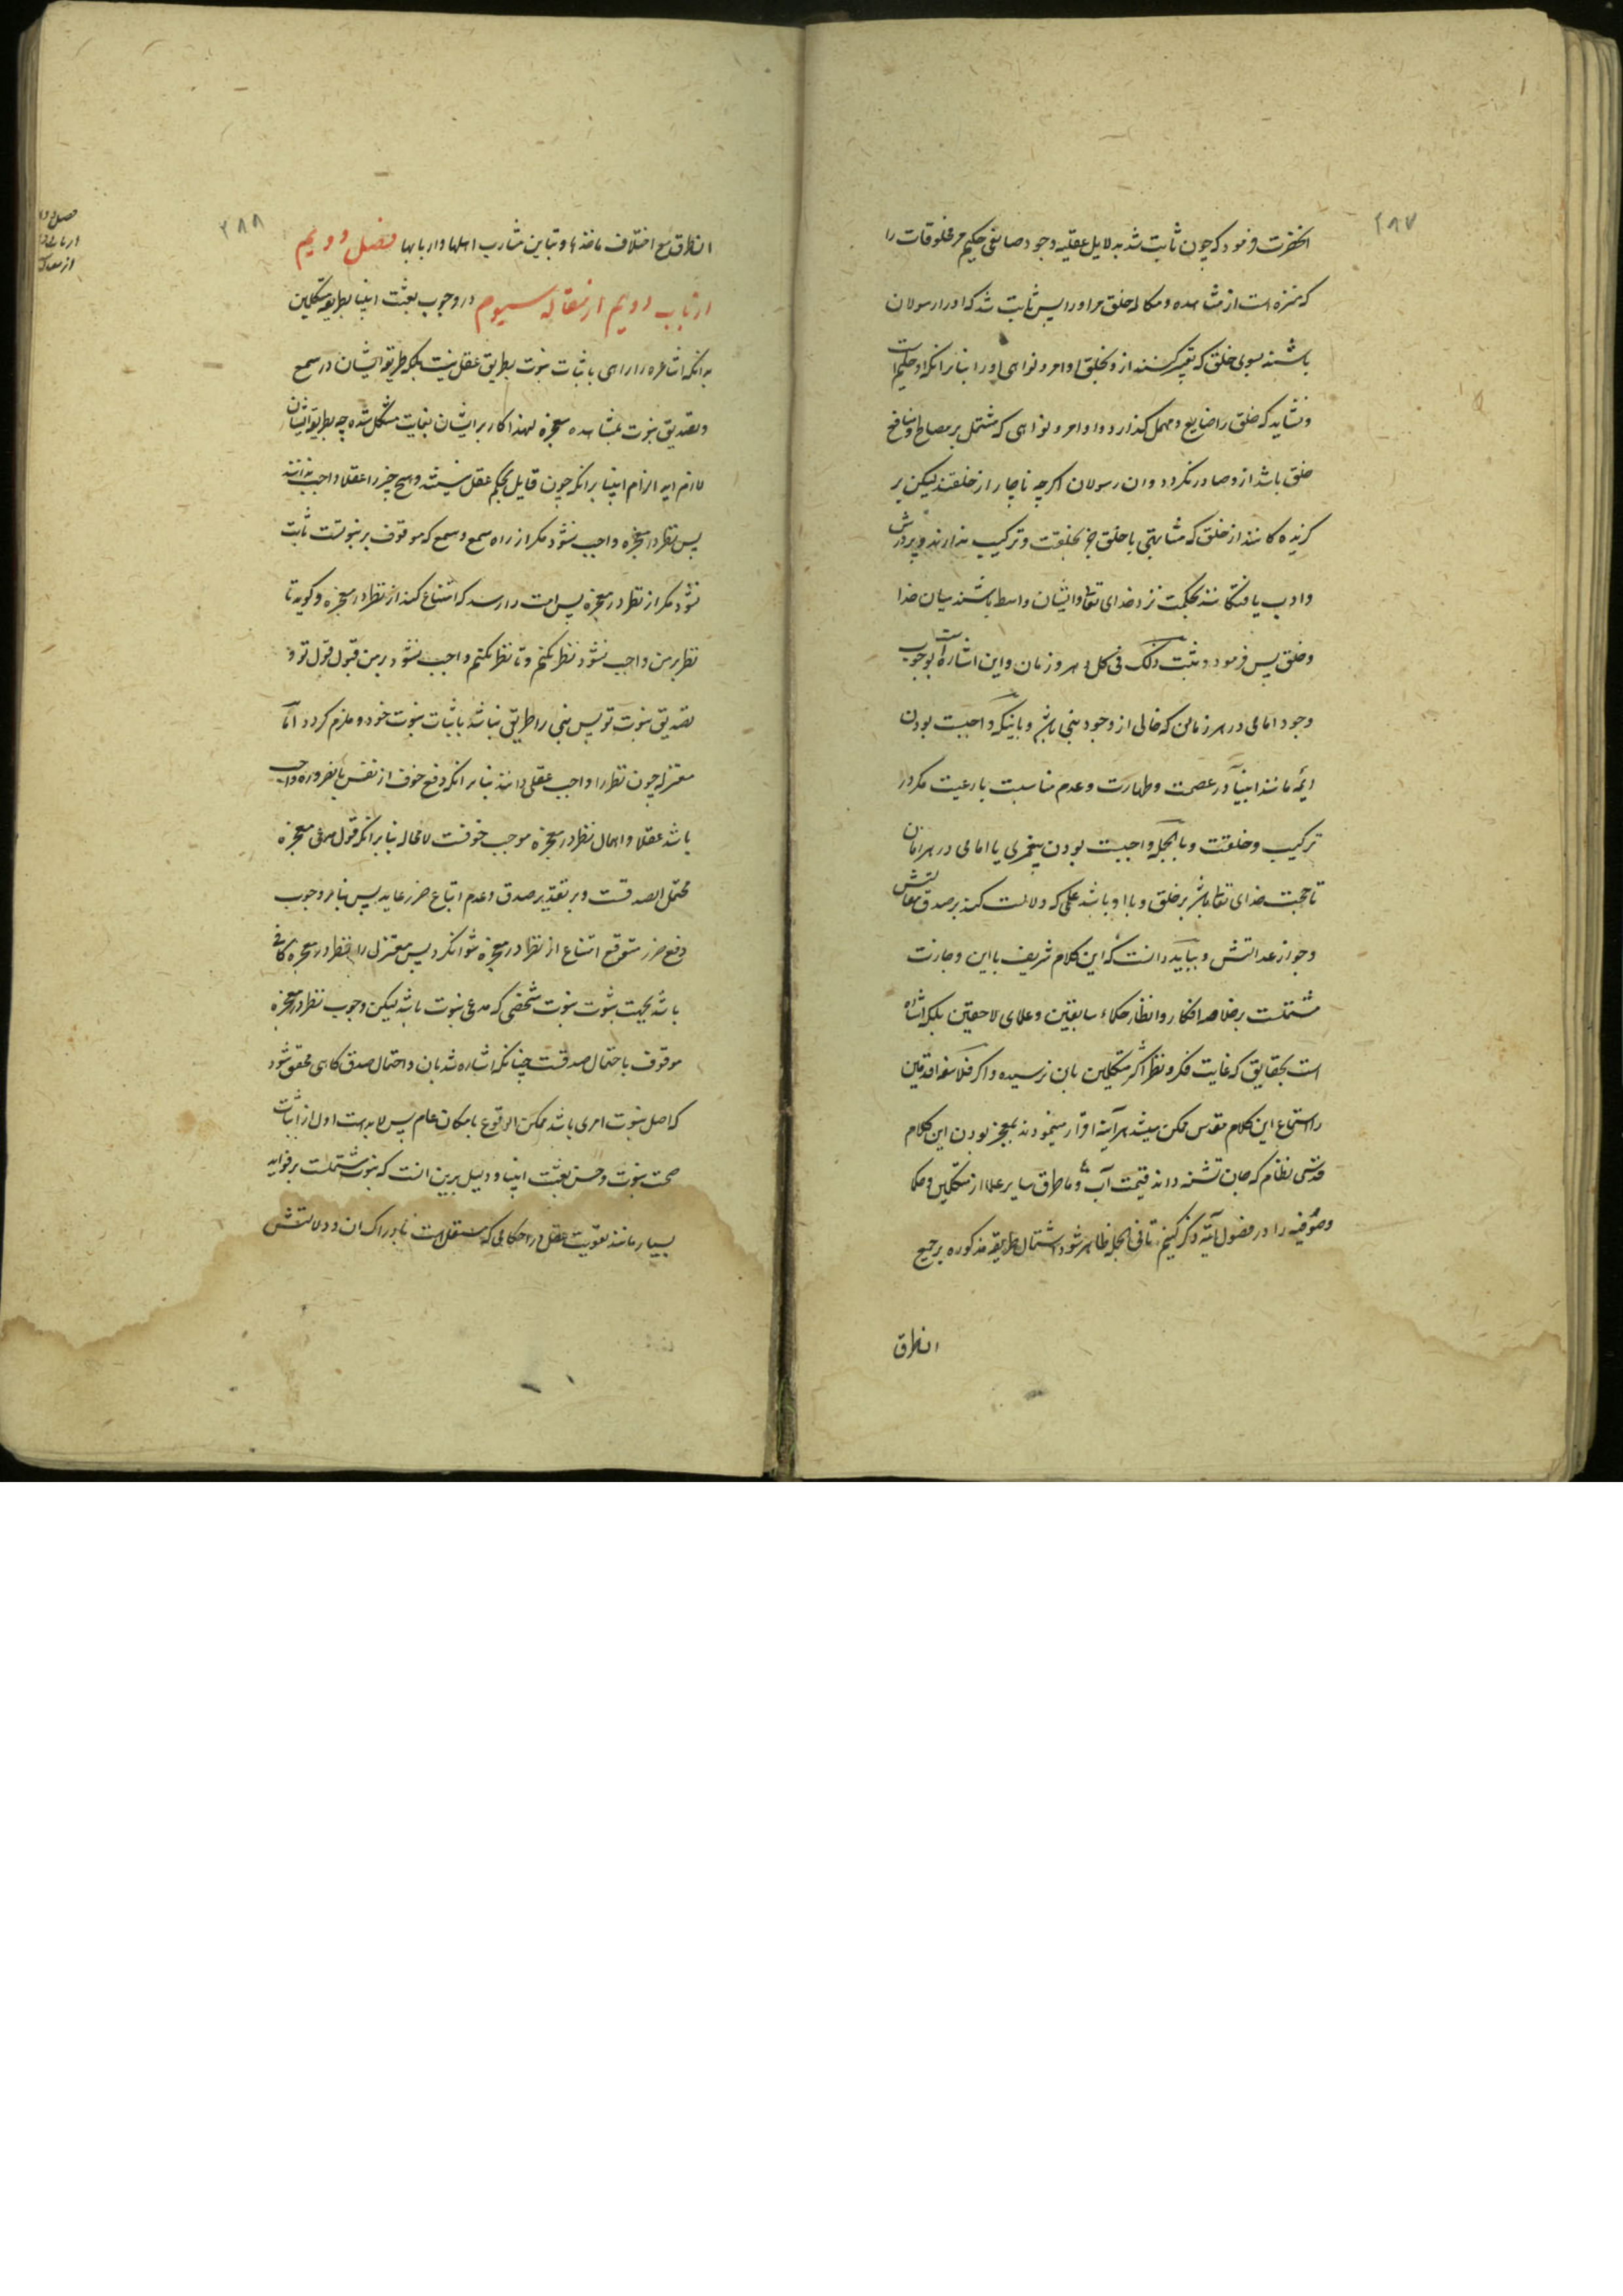 ۲۸۷
انحضرت فرمود که چون ثابت شد بدلایل عقلیه وجود صانعی حکیم مر مخلوقات را
که منزه است از مشاهده و مکالمه خلق مر او را پس ثابت شد که او را رسولان
باشند بسوی خلق که تعبیر کنند از و بخلق اوامر و نواهی او را بنا بر انکه او حکیم است
و نشاید که خلق را ضایع و مهمل کذارد و اوامر و نواهی که مشتمل بر مصالح و منافع
خلق باشد ازو صادر نکردد و ان رسولان اکرچه ناچار از خلقند لیکن بر
کزیده کانند از خلق که مشابهتی با خلق جز بخلقت و ترکیب ندارند و پرورش
و ادب یافتکانند بحکمت نزد خدای تعالی و ایشان واسطه باشند میان خدا
و خلق پس فرمود و ثبت ذلک فی کل دهر و زمان و این اشارتست بوجوب
وجود امامی در هر زمان که خالی از وجود نبی باشد و باینکه واجبست بودن
ایمه مانند انبیا در عصمت و طهارت و عدم مناسبت با رعیت مکر در
ترکیب و خلقت و بالجمله واجبست بودن پیغمبری یا امامی در هر زمان
تا حجت خدای تعالی باشد بر خلق و با او باشد علمی که دلالت کند بر صدق مقالتش
و جواز عدالتش و بباید دانست که این کلام شریف با این وجازت
مشتملست بر خلاصه افکار و انظار حکماء سابقین و علمای لاحقین بلکه اشاره
است بحقایقی که غایت فکر و نظر اکثر متکلمین بان نرسیده و اکر فلاسفه اقدمین
را استماع این کلام مقدس ممکن میشد هر آینه اقرار مینمودند بمعجز بودن این کلام
قدسی نظام که جان تشنه داند قیمت آب و ما طرق سایر علما از متکلمین و حکما
و صوفیه را در فصول آتیه ذکر کنیم تا فی الجمله ظاهر شود اشتمال طریقه مذکوره بر جمیع
انطرق
۲۸۸
انطرق مع اختلاف ماخذها و تباین مشارب اهلها و اربابها فصل دویم
از باب دویم از مقاله سیوم در وجوب بعثت انبیا بطریقه متکلمین
بدانکه اشاعره را راهی باثبات نبوت بطریق عقل نیست بلکه طریقه ایشان در سمع
و تصدیق نبوت بمشاهده معجزه لهذا کار بر ایشان بغایت مشکل شده چه بطریقه ایشان
لازم اید الزام انبیا بر انکه چون قایل بحکم عقل نیستند و هیچ چیز را عقلا واجب ندانند
پس نظر در معجزه واجب نشود مکر از راه سمع و سمع که موقوف بر نبوتست ثابت
نشود مکر از نظر در معجزه پس امت را رسد که امتناع کند از نظر در معجزه و کوید تا
نظر بر من واجب نشود نظر نکنم و تا نظر نکنم واجب نشود بر من قبول قول تو و
تصدیق نبوت تو پس نبی را طریقی نباشد باثبات نبوت خود و ملزم کردد اما
معتزله چون نظر را واجب عقلی دانند بنا بر انکه دفع خوف از نفس بالضروره واجب
باشد عقلا و اهمال نظر در معجزه موجب خوفست لامحاله بنا بر انکه قول مدعی معجزه
محتمل الصدقست و بر تقدیر صدق و عدم اتباع ضرر عاید پس بنا بر وجوب
دفع ضرر متوقع امتناع از نظر در معجزه نتوانکرد پس معتزلی را نظر در معجزه کافی
باشد بجهت ثبوت نبوت شخصی که مدعی نبوت باشد لیکن وجوب نظر در معجزه
موقوف باحتمال صدقست چنانکه اشاره شد بان و احتمال صدق کاهی محقق شود
که اصل نبوت امری باشد ممکن الوقوع بامکان عام پس لابد است اول از اثبات
صحت نبوت و حسن بعثت انبیا و دلیل برین انست که نبوت مشتملست بر فواید
بسیار مانند تقویت عقل در احکامی که مستقل است بادراک ان و دلالتش